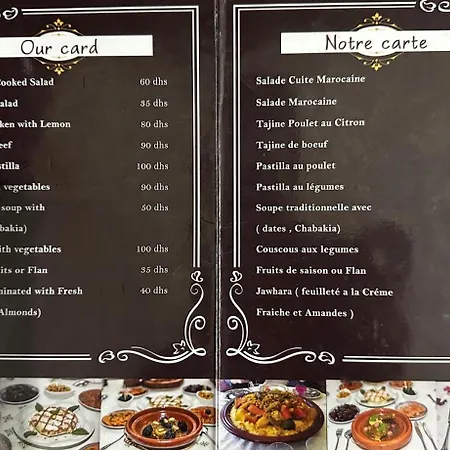 Our card
Cooked Salad 60 dhs
alad 35 dhs
ken with Lemon 80 dhs
eef 90 dhs
stilla 100 dhs
vegetables 90 dhs
soup with 50 dhs
bakia)
ith vegetables 100 dhs
its or Flan 35 dhs
minated with Fresh 40 dhs
Almonds)
Notre carte
Salade Cuite Marocaine
Salade Marocaine
Tajine Poulet au Citron
Tajine de boeuf
Pastilla au poulet
Pastilla au légumes
Soupe traditionnelle avec
( dates , Chabakia)
Couscous aux legumes
Fruits de saison ou Flan
Jawhara ( feuilleté a la Créme
Fraiche et Amandes )